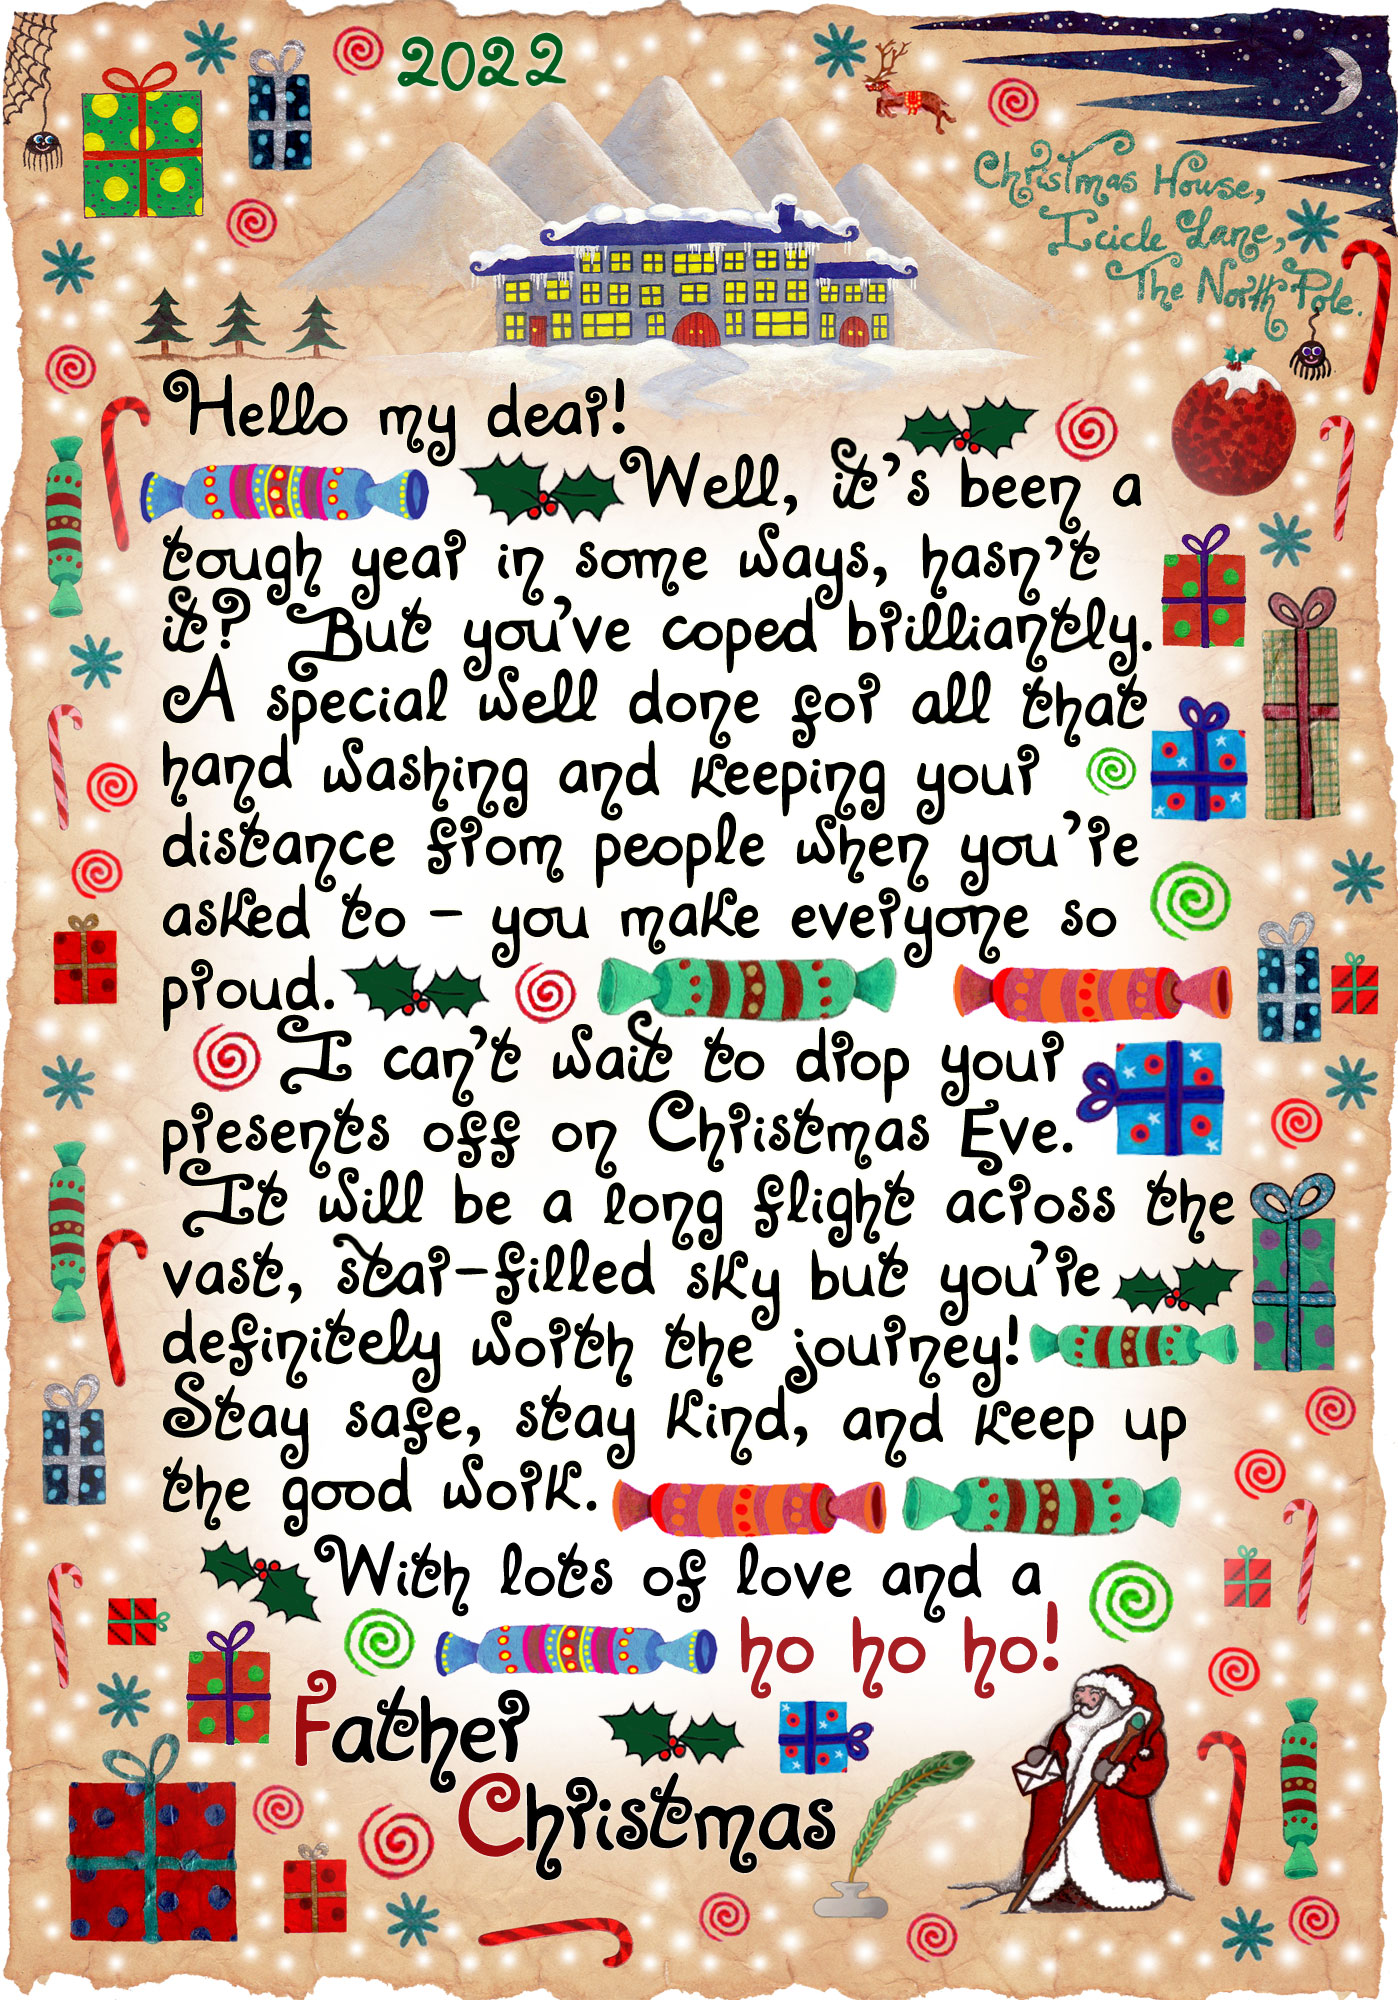 2022
Christmas House,
Icicle Lane,
The North Pole.
Hello my dear!
Well, it's been a
tough year in some ways, hasn't
it? But you've coped brilliantly.
A special well done for all that
hand washing and keeping your
distance from people when you're
asked to - you make everyone so
proud.
I can't wait to drop your
presents off on Christmas Eve.
It will be a long flight across the
vast, star-filled sky but you're
definitely worth the journey!
Stay safe, stay kind, and keep up
the good work.
With lots of love and a
ho ho ho!
Father
Christmas